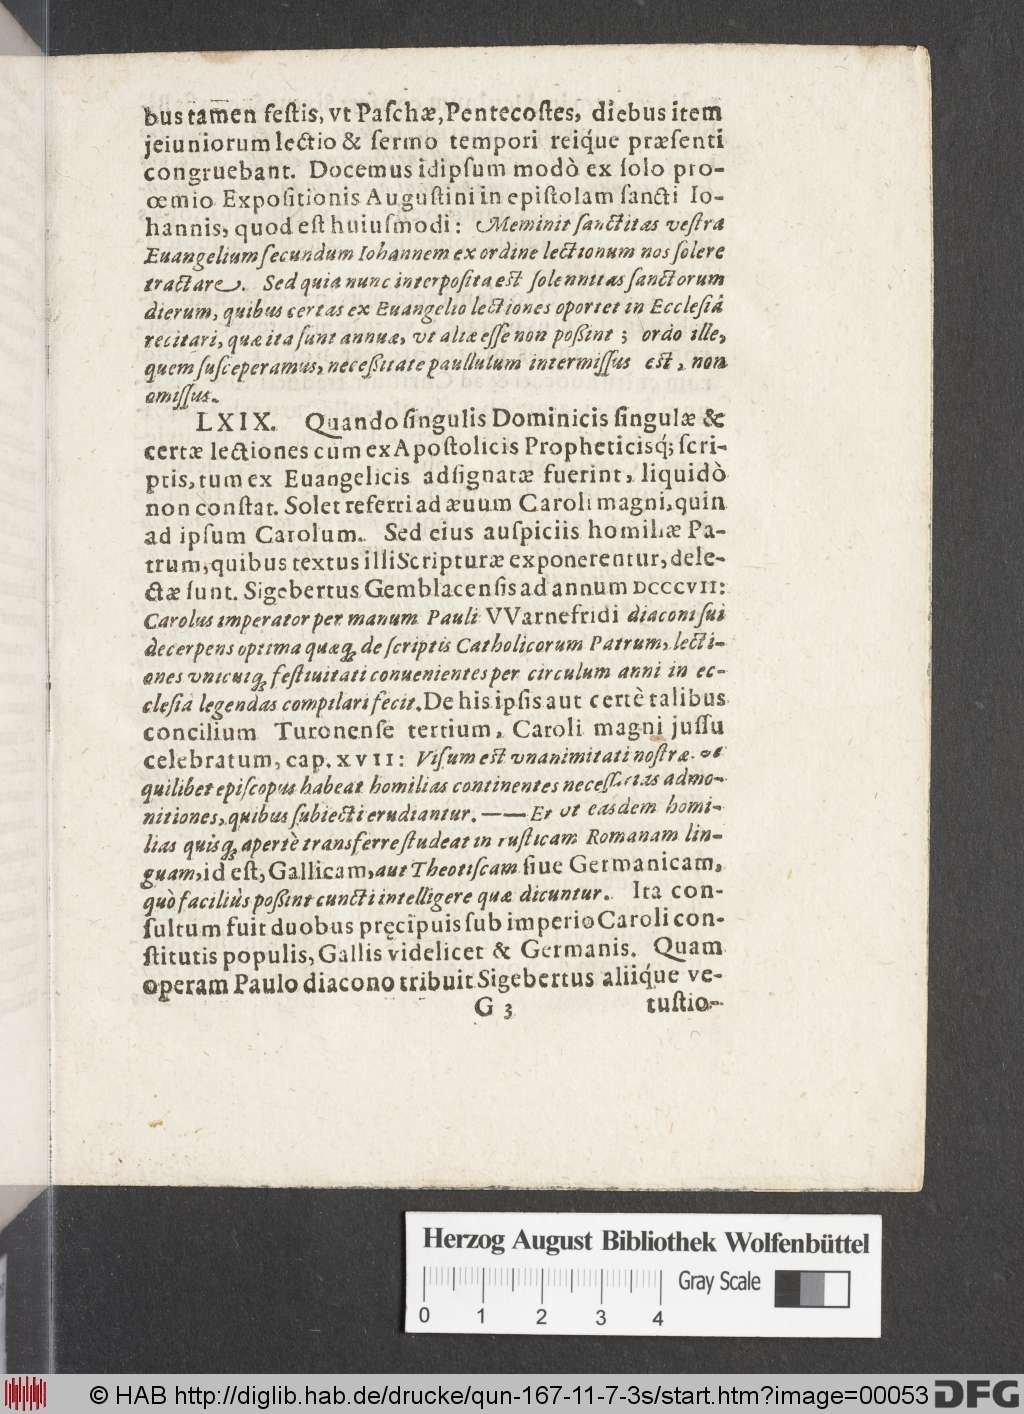 bus tamen festis, vt Paſchæ, Pentecostes, diebus item
jeiuniorum lectio & ſermo tempori reiq́ue præſenti
congruebant. Docemus idipſum modò ex ſolo pro-
œmio Expoſitionis Auguſtini in epiſtolam ſancti Io-
hannis, quod eſt huiuſmodi: Meminit ſanctitas veſtra
Euangelium ſecundum Iohannem ex ordine lectionum nos ſolere
tractare. Sed quia nunc interpoſita eſt ſolennitas ſanctorum
dierum, quibus certas ex Euangelio lectiones oportet in Eccleſiâ
recitari, quæ ita ſunt annuæ, vt aliæ eſſe non poßint; ordo ille,
quem ſuſceperamus, neceßitate paullulum intermiſſus eſt, non
omiſſus.
LXIX. Quando ſingulis Dominicis ſingulæ &
certæ lectiones cùm ex Apoſtolicis Propheticisq́; ſcri-
ptis, tum ex Euangelicis adſignatæ fuerint, liquidò
non conſtat. Solet referri ad æuum Caroli magni, quin
ad ipſum Carolum. Sed eius auſpiciis homiliæ Pa-
trum, quibus textus illi Scripturæ exponerentur, dele-
ctæ ſunt. Sigebertus Gemblacenſis ad annum DCCCVII:
Carolus imperator per manum Pauli VVarnefridi diaconi ſui
decerpens optima quæq; de ſcriptis Catholicorum Patrum, lecti-
ones vnicuiq; feſtiuitati conuenientes per circulum anni in ec-
cleſiâ legendas compilari fecit. De his ipſis aut certè talibus
concilium Turonenſe tertium, Caroli magni juſſu
celebratum, cap. XVII: Viſum eſt vnanimitati noſtræ. vt
quilibet epiſcopus habeat homilias continentes neceſſarias admo-
nitiones, quibus ſubiecti erudiantur. —— Et vt easdem homi-
lias quisq; apertè transferre ſtudeat in ruſticam Romanam lin-
guam, id eſt, Gallicam, aut Theotiſcam ſiue Germanicam,
quò faciliùs poßint cuncti intelligere quæ dicuntur. Ita con-
ſultum fuit duobus pręcipuis ſub imperio Caroli con-
ſtitutis populis, Gallis videlicet & Germanis. Quam
operam Paulo diacono tribuit Sigebertus aliiq́ue ve-
G 3 tuſtio-
Herzog August Bibliothek Wolfenbüttel
Gray Scale
0 1 2 3 4
© HAB http://diglib.hab.de/drucke/qun-167-11-7-3s/start.htm?image=00053 DFG